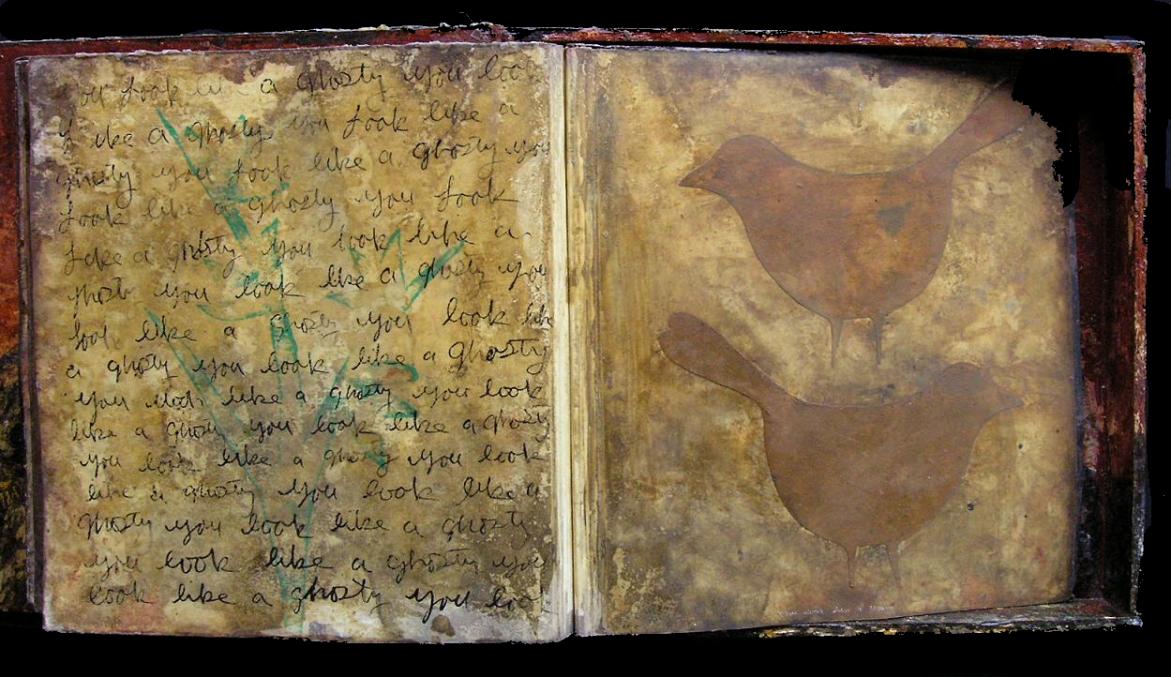 you look like a ghosty you loo
like a ghosty you look like a
ghosty you look like a ghosty you
look like a ghosty you look
like a ghosty you look like a
ghosty you look like a ghosty you
look like a ghosty you look like
a ghosty you look like a ghosty
you look like a ghosty you look
like a ghosty you look like a ghosty
you look like a ghosty you look
like a ghosty you look like a
ghosty you look like a ghosty
you look like a ghosty you
look like a ghosty you look